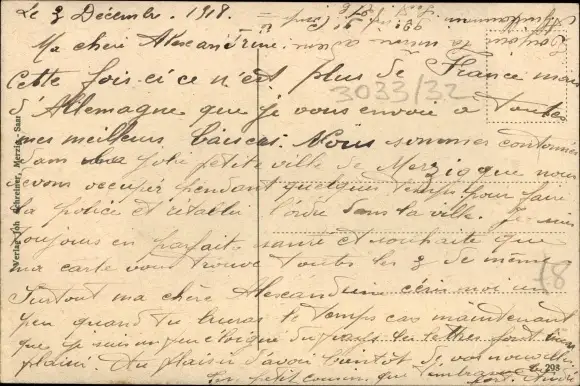 Le 3 Décembre . 1918.
Ma chère Alexandrine
Cette fois-ci ce n'est plus de France mais
d'Allemagne que je vous envoie a toutes
mes meilleurs baisers. Nous sommes cantonnés
dans une jolie petite ville de Merzig que nous
avons occuper pendant quelques temps pour faire
la police et rétablir l'ordre dans la ville. Je suis
toujours en parfaite santé et souhaite que
ma carte vous trouve toutes les 3 de même
Surtout ma chère Alexandrine écris moi un
peu quand tu auras le temps car maintenant
que je suis un peu éloigné du pays les lettres font bien
plaisir. Au plaisir d'avoir bientôt de vos nouvelles
Ton petit cousin que t'embrasse
3033/32
18
Verlag Joh. Schreiner, Merzig-Saar
298